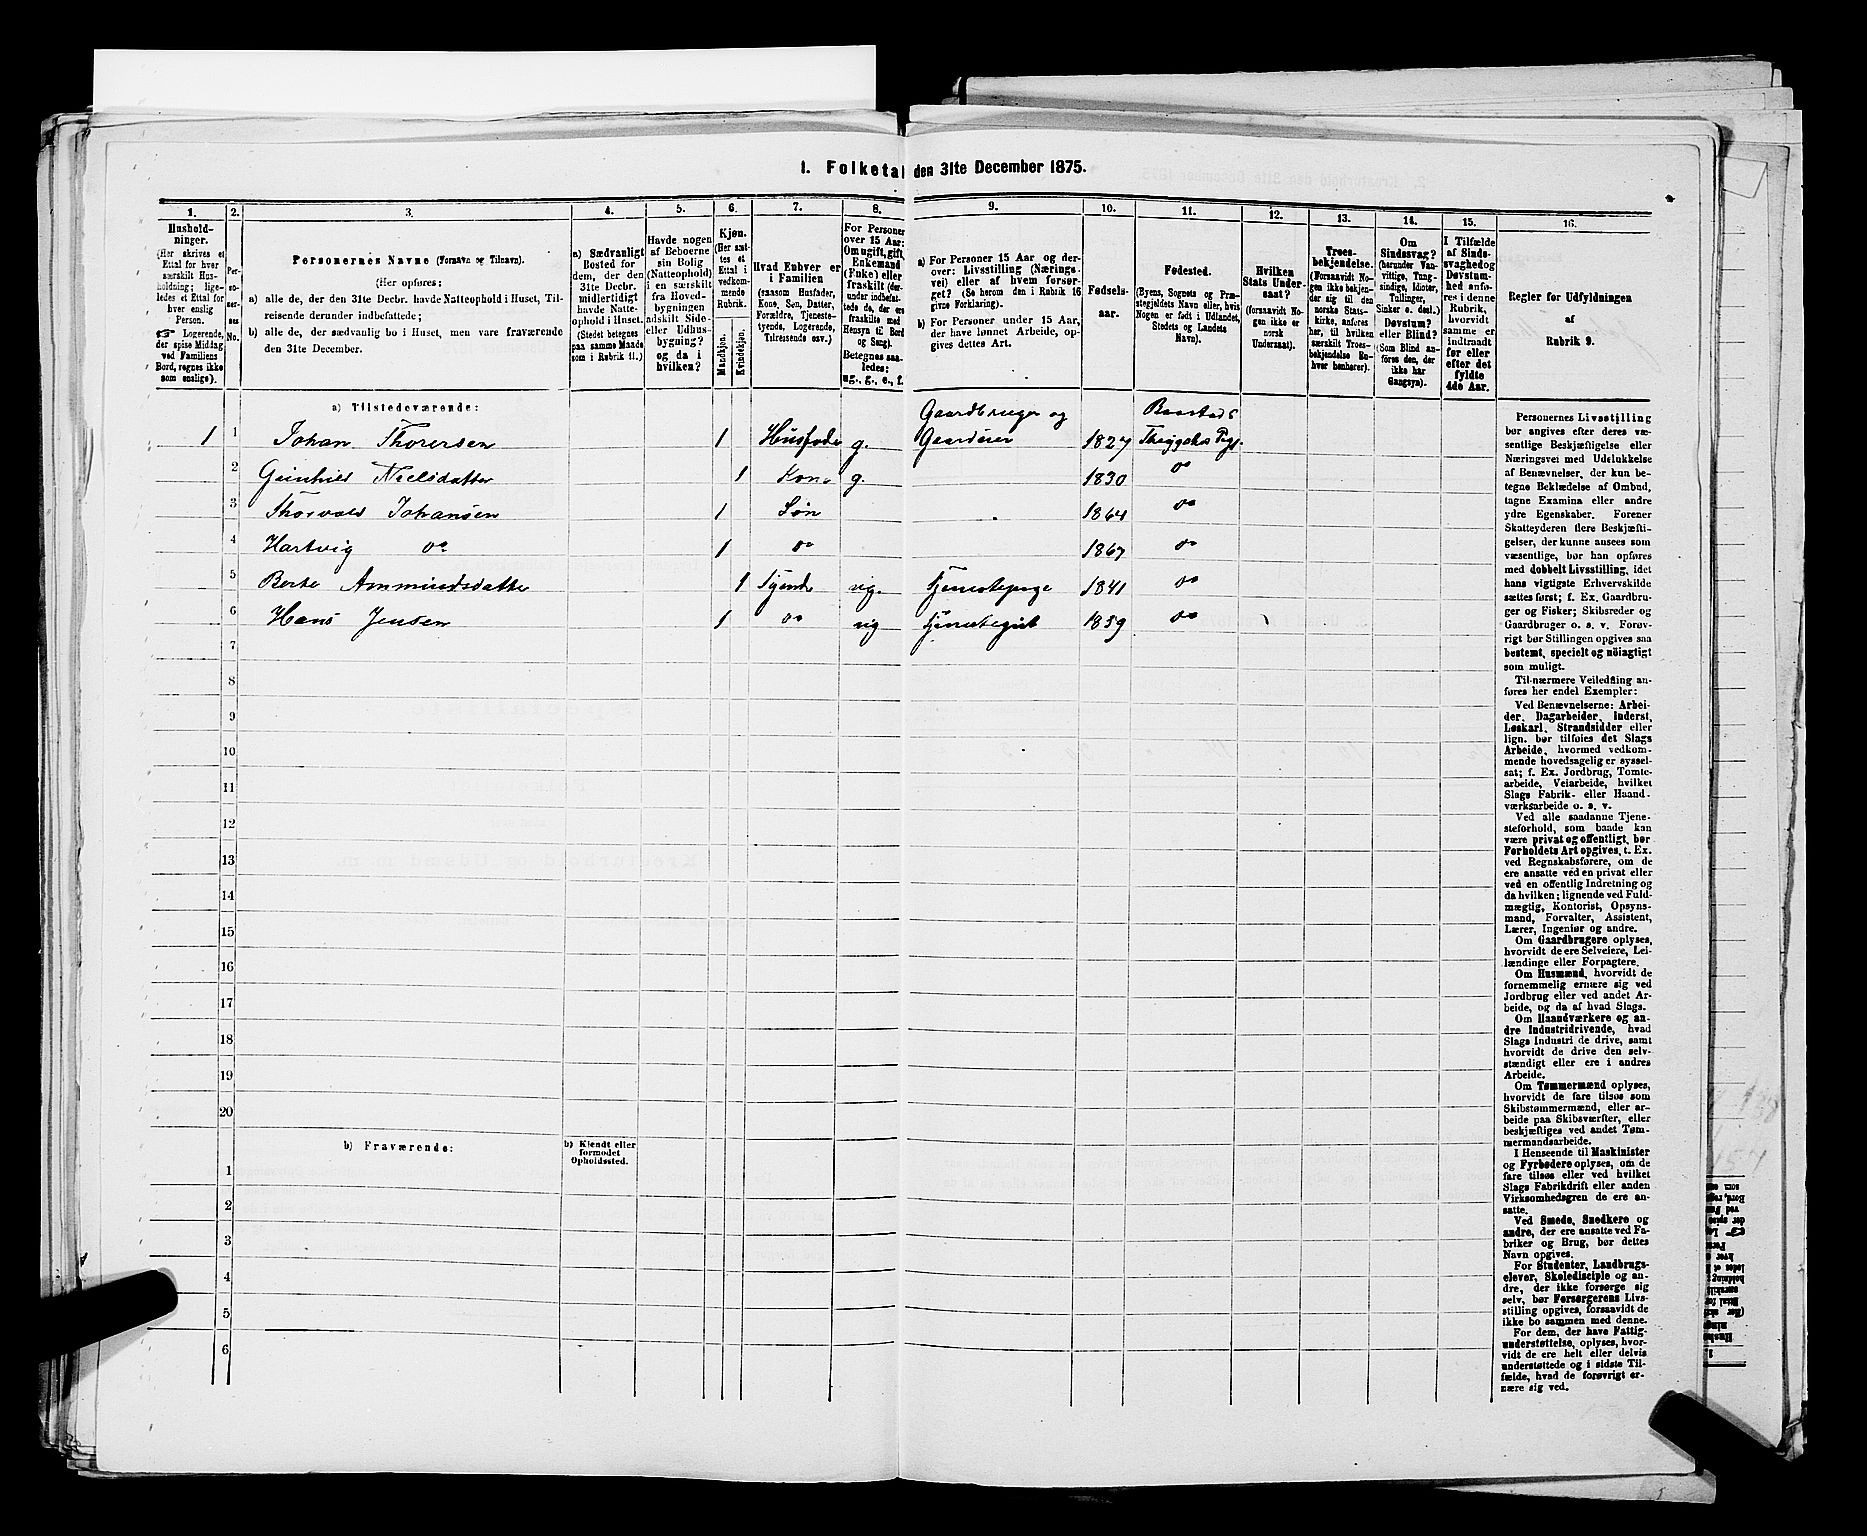 1. Folketal den 31te December 1875.
1. 2. 3. 4. 5. 6. 7. 8. 9. 10. 11. 12. 13. 14. 15. 16.
Hushold-
ninger.
(Her skrives et
Ettal for hver
særskilt Hus-
holdning; lige-
ledes et Ettal for
hver enslig
Person.
☞ Logerende,
der spise Middag
ved Familiens
Bord, regnes ikke
som enslige).
Per-
so-
ner-
nes
No.
Personernes Navne (Fornavn og Tilnavn).
(Her opføres:
a) alle de, der den 31te Decbr. havde Natteophold i Huset, Til-
reisende derunder indbefattede;
b) alle de, der sædvanlig bo i Huset, men vare fraværende
den 31te December.
a) Sædvanligt
Bosted for
dem, der den
31te Decbr.
midlertidigt
havde Natte-
ophold i Huset.
(Stedet betegnes
paa samme Maade
som i Rubrik 11.)
Havde nogen
af Beboerne
sin Bolig
(Natteophold)
i en særskilt
fra Hoved-
bygningen
adskilt Side-
eller Udhus-
bygning?
og da i
hvilken?
Kjøn.
(Her sæt-
tes et
Ettal i
vedkom-
mende
Rubrik.
Mandkjøn.
Kvindekjøn.
Hvad Enhver er
i Familien
(saasom Husfader,
Kone, Søn, Datter,
Forældre, Tjeneste-
tyende, Logerende,
Tilreisende osv.)
For Personer
over 15 Aar:
Om ugift, gift,
Enkemand
(Enke) eller
fraskilt (der-
under indbefat-
tede de, der
ere fraskilte med
Hensyn til Bord
og Seng).
Betegnes saa-
ledes:
ug., g., e., f.
a) For Personer 15 Aar og der-
over: Livsstilling (Nærings-
vei) eller af hvem forsør-
get? (Se herom den i Rubrik 16
givne Forklaring).
b) For Personer under 15 Aar,
der have lønnet Arbeide, op-
gives dettes Art.
Fødsels-
aar.
Fødested.
(Byens, Sognets og Præ-
stegjeldets Navn eller, hvis
Nogen er født i Udlandet,
Stedets og Landets
Navn).
Hvilken
Stats Under-
saat?
(forsaavidt No-
gen ikke er
norsk
Undersaat).
Troes-
bekjendelse.
(Forsaavidt No-
gen ikke bekjen-
der sig til den
norske Stats-
kirke, anføres
her, til hvilken
særskilt Troes-
bekjendelse En-
hver henhører).
Om
Sindssvag?
(herunder Van-
vittige, Tung-
sindige, Idioter,
Tullinger,
Sinker o. desl.)
Døvstum?
eller Blind?
(Som Blind an-
føres den, der
ikke har
Gangsyn).
I Tilfælde
af Sinds-
svaghed og
Døvstum-
hed anfø-
res i denne
Rubrik,
hvorvidt
samme er
indtraadt
før eller
efter det
fyldte
4de Aar.
Regler for Udfyldningen
af
Rubrik 9.
a) Tilstedeværende:
Gaardbruger og Baastads
1 1 Johan Thorersen 1 Husfader g. Gaardeier 1827 Thrygstad Pgj.
2 Gunhild Nielsdatter 1 Kone g. 1830 do
3 Thorvald Johansen 1 Søn 1864 do
4 Hartvig do 1 do 1867 do
5 Berte Ammundsdatter 1 Tyende ug. Tjenestepige 1841 do
6 Hans Jensen 1 do ug Tjenestegut 1859 do
7
8
9
10
11
12
13
14
15
16
17
18
19
20
b) Fraværende:
b) Kjendt eller
formodet
Opholdssted.
1
2
3
4
5
6
Personernes Livsstilling
bør angives efter deres væ-
sentlige Beskjæftigelse eller
Næringsvei med Udelukkelse
af Benævnelser, der kun be-
tegne Beklædelse af Ombud,
tagne Examina eller andre
ydre Egenskaber. Forener
Skatteyderen flere Beskjæfti-
gelser, der kunne ansees som
væsentlige, bør han opføres
med dobbelt Livsstilling, idet
hans vigtigste Erhvervskilde
sættes først; f. Ex. Gaardbru-
ger og Fisker; Skibsreder og
Gaardbruger o. s. v. Forøv-
rigt bør Stillingen opgives saa
bestemt, specielt og nöiagtigt
som muligt.
Til nærmere Veiledning an-
føres her endel Exempler:
Ved Benævnelserne: Arbei-
der, Dagarbeider, Inderst,
Løskarl, Strandsidder eller
lign. bør tilføies det Slags
Arbeide, hvormed vedkom-
mende hovedsagelig er syssel-
sat; f. Ex. Jordbrug, Tomte-
arbeide, Veiarbeide, hvilket
Slags Fabrik- eller Haand-
værksarbeide o. s. v.
Ved alle saadanne Tjene-
steforhold, som baade kan
være privat og offentligt, bør
Forholdets Art opgives, t. Ex.
ved Regnskabsførere, om de
ere ansatte ved en privat eller
ved en offentlig Indretning og
da hvilken; lignende ved Fuld-
mægtig, Kontorist, Opsyns-
mand, Forvalter, Assistent,
Lærer, Ingeniør og andre.
Om Gaardbrugere oplyses,
hvorvidt de ere Selveiere, Lei-
lændinge eller Forpagtere.
Om Husmænd, hvorvidt de
fornemmelig ernære sig ved
Jordbrug eller ved andet Ar-
beide, og da af hvad Slags.
Om Haandværkere og an-
dre Industridrivende, hvad
Slags Industri de drive, samt
hvorvidt de drive den selv-
stændigt eller ere i andres
Arbeide.
Om Tømmermænd oplyses,
hvorvidt de fare tilsøs som
Skibstømmermænd, eller ar-
beide paa Skibsværfter, eller
beskjæftiges ved andet Tøm-
mermandsarbeide.
I Henseende til Maskinister
og Fyrbødere oplyses, om de
fare tilsøs eller ved hvilket
Slags Fabrikdrift eller anden
Virksomhedsgren de ere an-
satte.
Ved Smede, Snedkere og
andre, der ere ansatte ved Fa-
briker og Brug, bør dettes
Navn opgives.
For Studenter, Landbrugs-
elever, Skoledisciple og an-
dre, der ikke forsørge sig
selv, bør Forsørgerens Livs-
stilling opgives, forsaavidt de
ikke bo sammen med denne.
For dem, der have Fattig-
understøttelse, oplyses, hvor-
vidt de ere helt eller delvis
understøttede og i sidste Til-
fælde, hvad de forøvrigt er-
nære sig ved.